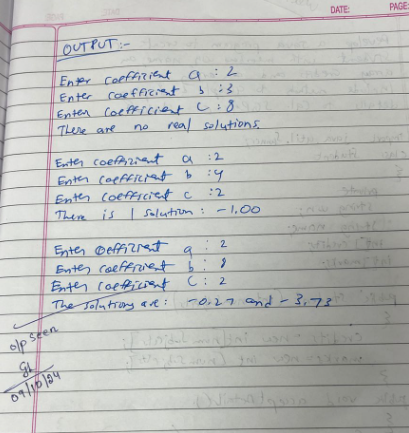 DATE:
PAGE:
OUTPUT:-
Enter coefficient a : 2
Enter coefficient b : 3
Enter coefficient c : 8
There are no real solutions.
Enter coefficient a : 2
Enter coefficient b : 4
Enter coefficient c : 2
There is 1 solution : -1.00
Enter coefficient a : 2
Enter coefficient b : 8
Enter coefficient c : 2
The solutions are : -0.27 and -3.73
o/p seen
09/10/24